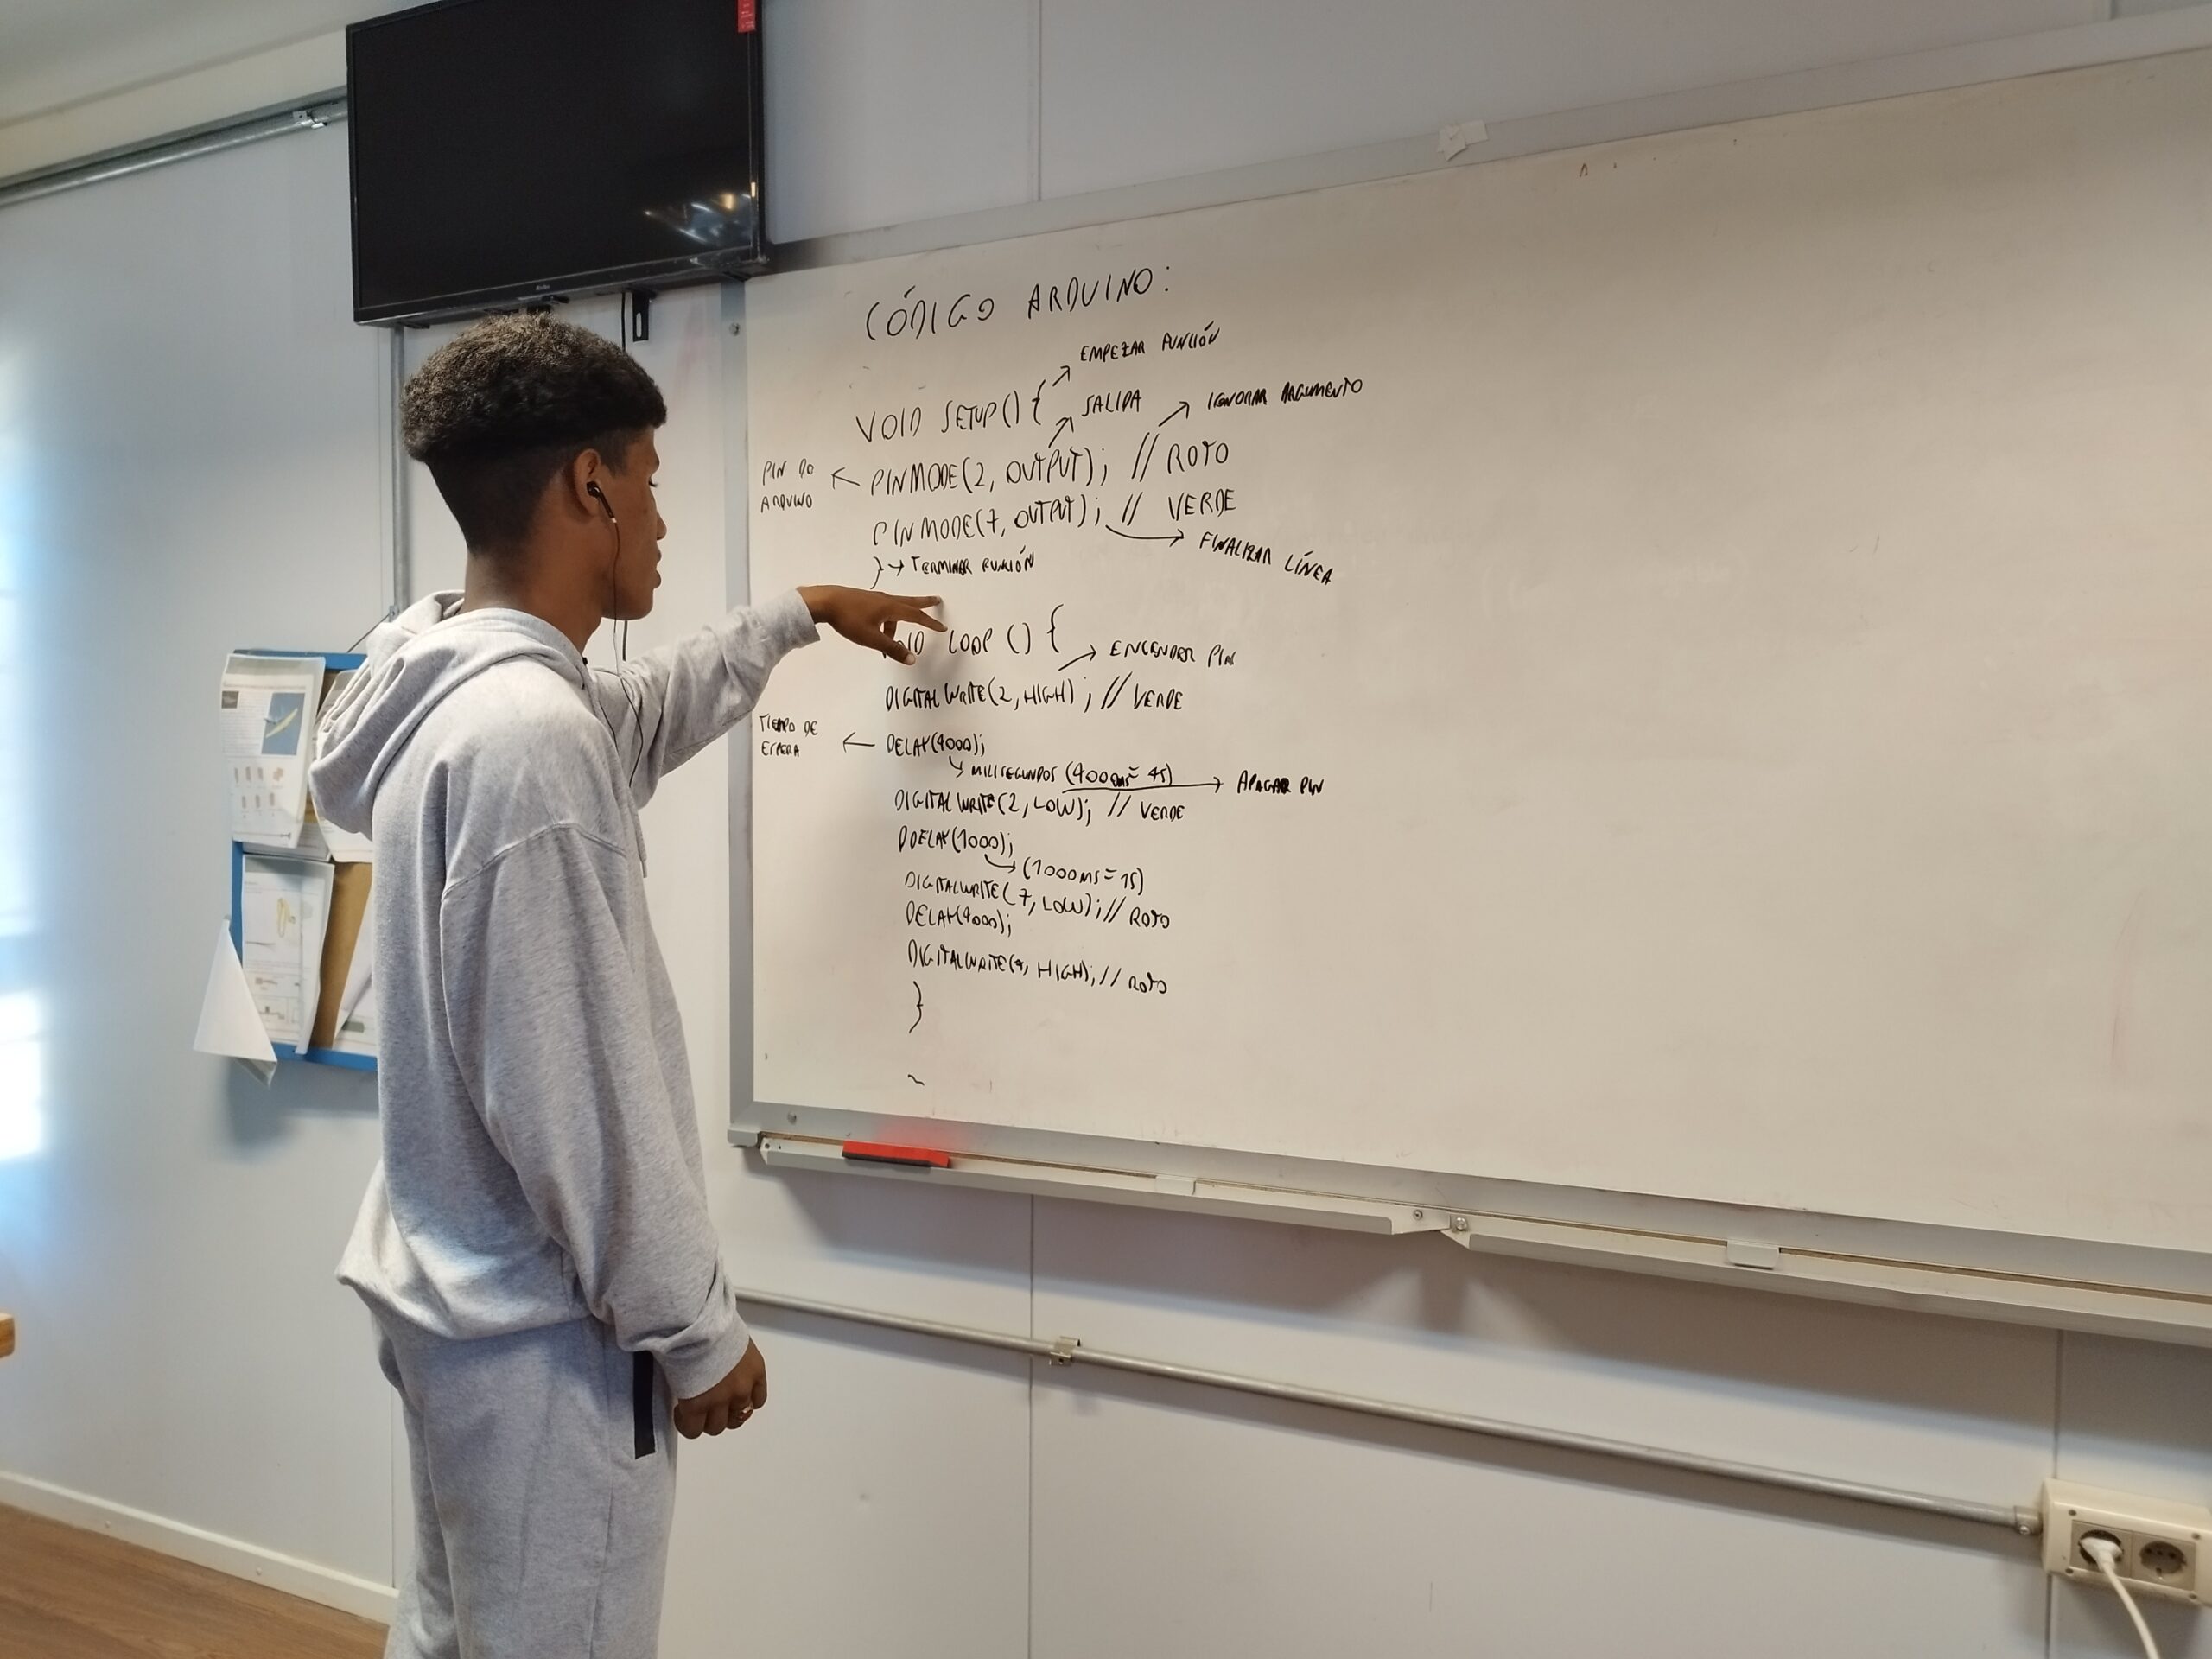 CÓDIGO ARDUINO:
EMPEZAR FUNCIÓN
VOID SETUP() {
SALIDA
IGNORAR ARGUMENTO
PIN DO
ARDUINO
PINMODE(2, OUTPUT); // ROJO
PINMODE(7, OUTPUT); // VERDE
FINALIZAR LÍNEA
} → TERMINAR FUNCIÓN
LOOP () {
ENCENDER PIN
DIGITALWRITE(2, HIGH); // VERDE
TIEMPO DE
ESPERA
DELAY(4000);
MILISEGUNDOS (4000ms = 4S)
APAGAR PIN
DIGITALWRITE(2, LOW); // VERDE
DDELAY(1000);
(1000MS = 1S)
DIGITALWRITE(7, LOW); // ROJO
DELAY(4000);
DIGITALWRITE(7, HIGH); // ROJO
}